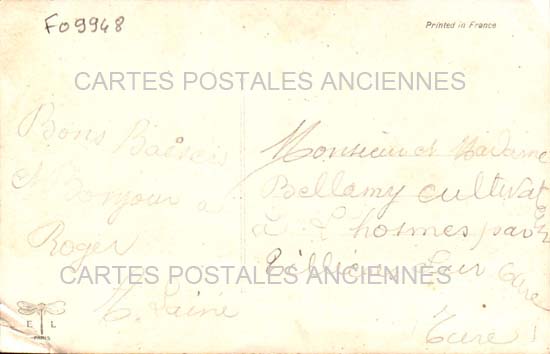 F09948
Printed in France
CARTES POSTALES ANCIENNES
Bons Baisers
et Bonjour a
Roger
Monsieur et Madame
Bellamy cultivat
a L'hosmes par
Eure
CARTES POSTALES ANCIENNES
Eure
E L
PARIS